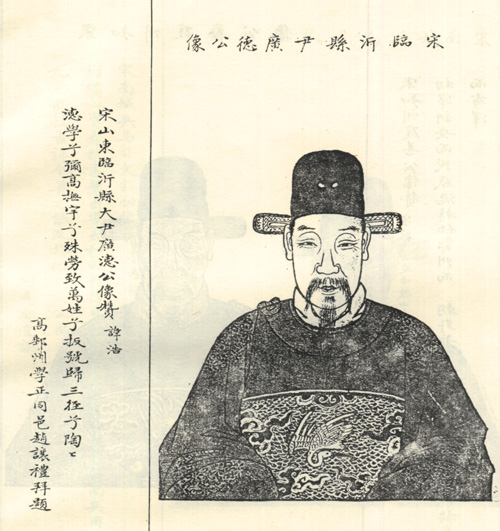 宋臨沂縣尹廣德公像
宋山東臨沂縣大尹廣德公像贊 諱浩
德學兮彌高撫字兮殊勞致萬姓兮扳號歸三徑兮陶〻
高郵州學正同邑趙讓禮拜題